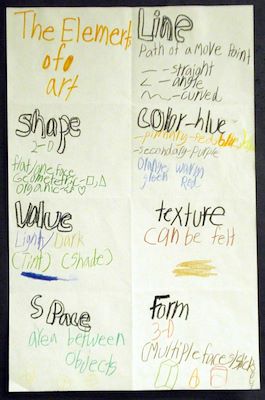 The Elements
of
art
Line
Path of a Move Point
straight
angle
curved
shape
2-D
flat/one face
Geometric
organic
Color-blue
primary-red
Secondary-Purple
orange warm
green Red
Value
Light/Dark
(Tint) (Shade)
texture
can be felt
SPace
area between
objects
Form
3-D
(Multiple faces/